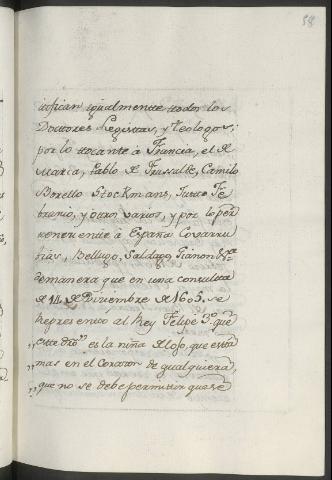 58
igualmente todos los
Doctores Legistas, y Teologos;
por lo tocante à Francia, el de
Marca, Pablo de Camilo
Borello Stockmans, Fe
bronio, y otros varios, y por lo per
teneciente à España Covarru
bias, Bellugo, Salgado
demanera que en una consulta
de de Diciembre de 1605. se
representó al Rey Felipe 3.º que
,, este dro es la niña del ojo, que esta
mas en el Corazon de qualquiera,
,, que no se debe permitir que se